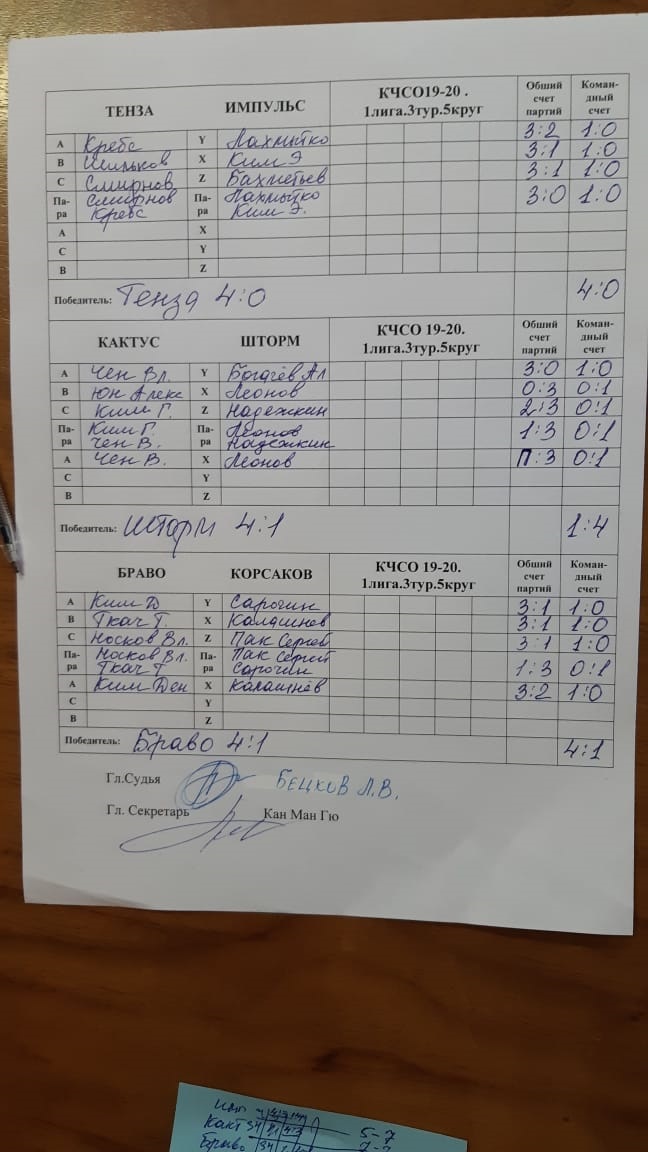 ТЕНЗА ИМПУЛЬС КЧСО19-20 . 1лига.3тур.5круг Общий счет партий Коман-дный счет
A Кребс Y Лахмытко 3:2 1:0
B X Ким Э 3:1 1:0
C Смирнов Z Бахметьев 3:1 1:0
Па-ра Смирнов Кребс Па-ра Лахмытко Ким Э. 3:0 1:0
A X
C Y
B Z
Победитель: Тенза 4:0 4:0
КАКТУС ШТОРМ КЧСО 19-20. 1лига.3тур.5круг Общий счет партий Коман-дный счет
A Чен Вл. Y Богачёв Ал 3:0 1:0
B Юн Алекс X Леонов 0:3 0:1
C Ким Г. Z Надежкин 2:3 0:1
Па-ра Ким Г. Чен В. Па-ра Леонов Надежкин 1:3 0:1
A Чен В. X Леонов П:3 0:1
C Y
B Z
Победитель: Шторм 4:1 1:4
БРАВО КОРСАКОВ КЧСО 19-20. 1лига.3тур.5круг Общий счет партий Коман-дный счет
A Ким Д Y Сарочин 3:1 1:0
B Ткач Т. X Калашнёв 3:1 1:0
C Носков Вл. Z Пак Сергей 3:1 1:0
Па-ра Носков Вл. Ткач Т Па-ра Пак Сергей Сарочин 1:3 0:1
A Ким Ден X Калашнёв 3:2 1:0
C Y
B Z
Победитель: Браво 4:1 4:1
Гл.Судья Бецков Л.В.
Гл. Секретарь Кан Ман Гю
Какт
5-7
Браво